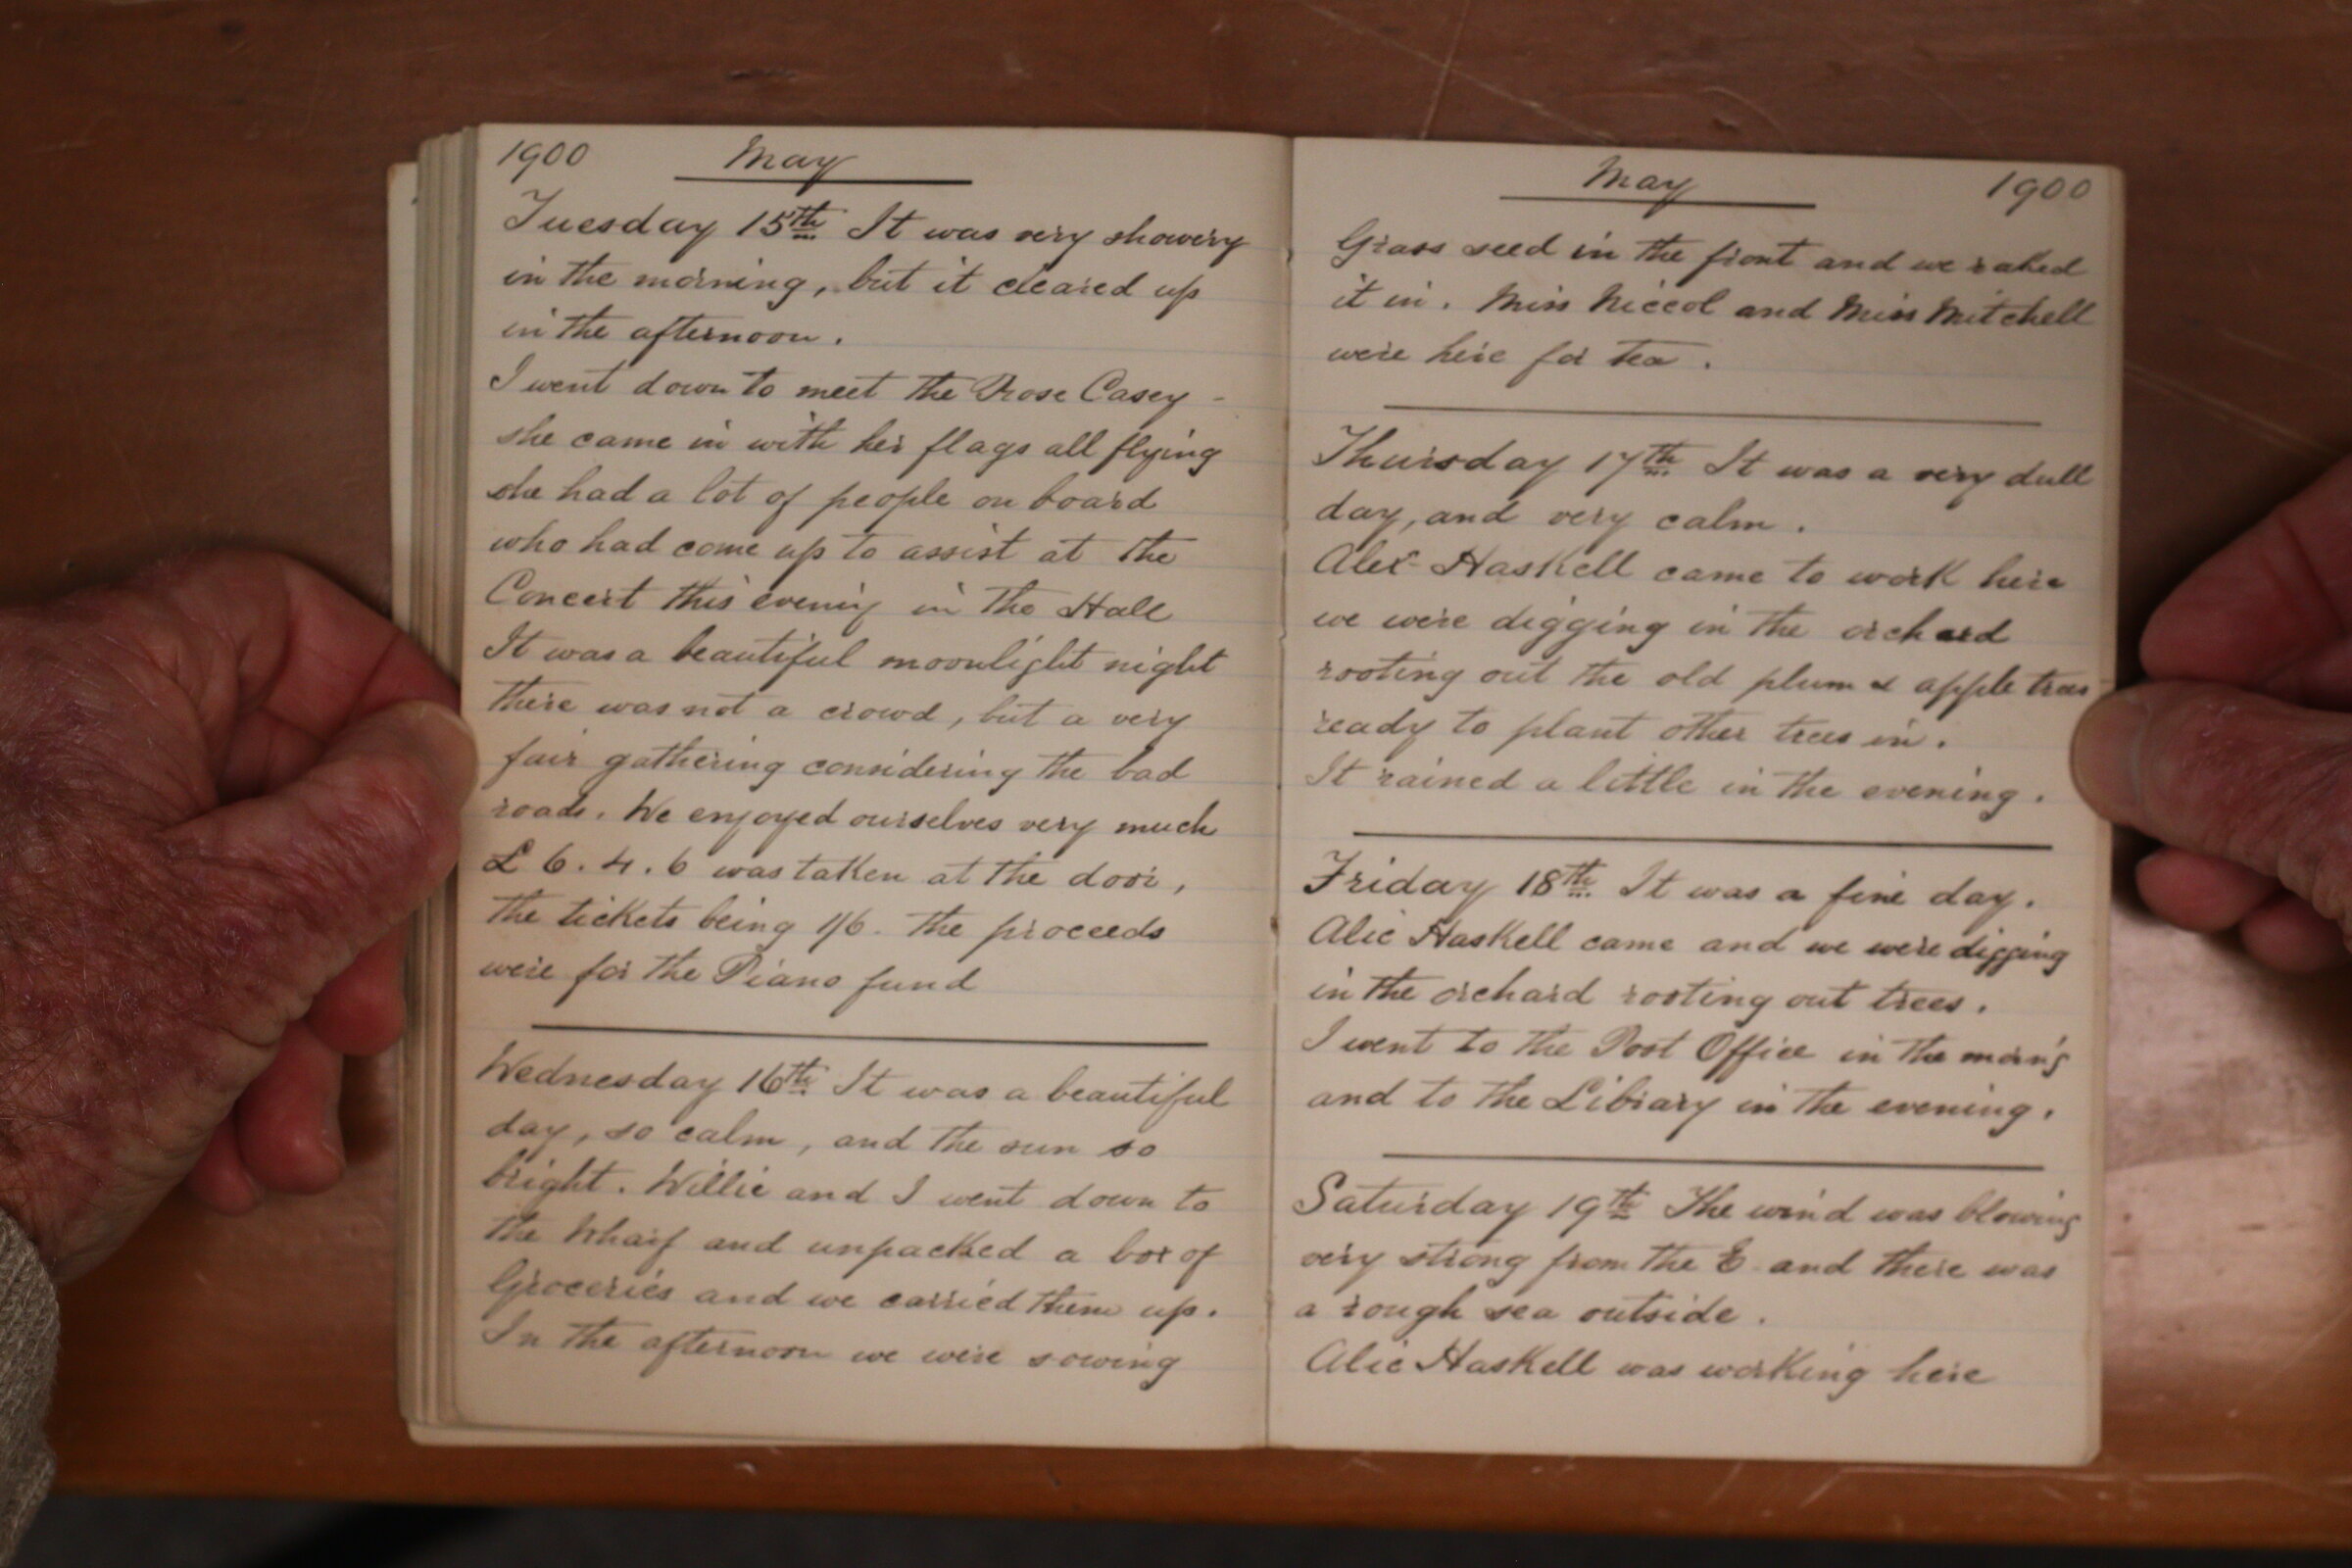 1900 May
Tuesday 15th It was very showery
in the morning, but it cleared up
in the afternoon.
I went down to meet the Rose Casey -
she came in with her flags all flying
she had a lot of people on board
who had come up to assist at the
Concert this evening in the Hall
It was a beautiful moonlight night
there was not a crowd, but a very
fair gathering considering the bad
roads. We enjoyed ourselves very much
£ 6.4.6 was taken at the door,
the tickets being 1/6. The proceeds
were for the Piano fund
Wednesday 16th It was a beautiful
day, so calm, and the sun so
bright. Willie and I went down to
the Wharf and unpacked a box of
Groceries and we carried them up.
In the afternoon we were sowing
May 1900
Grass seed in the front and we raked
it in. Miss Niccol and Miss Mitchell
were here for tea.
Thursday 17th It was a very dull
day, and very calm.
Alex Haskell came to work here
we were digging in the orchard
rooting out the old plum & apple trees
ready to plant other trees in.
It rained a little in the evening.
Friday 18th It was a fine day.
Alic Haskell came and we were digging
in the orchard rooting out trees.
I went to the Post Office in the morn'g
and to the Library in the evening.
Saturday 19th The wind was blowing
very strong from the E. and there was
a rough sea outside.
Alic Haskell was working here